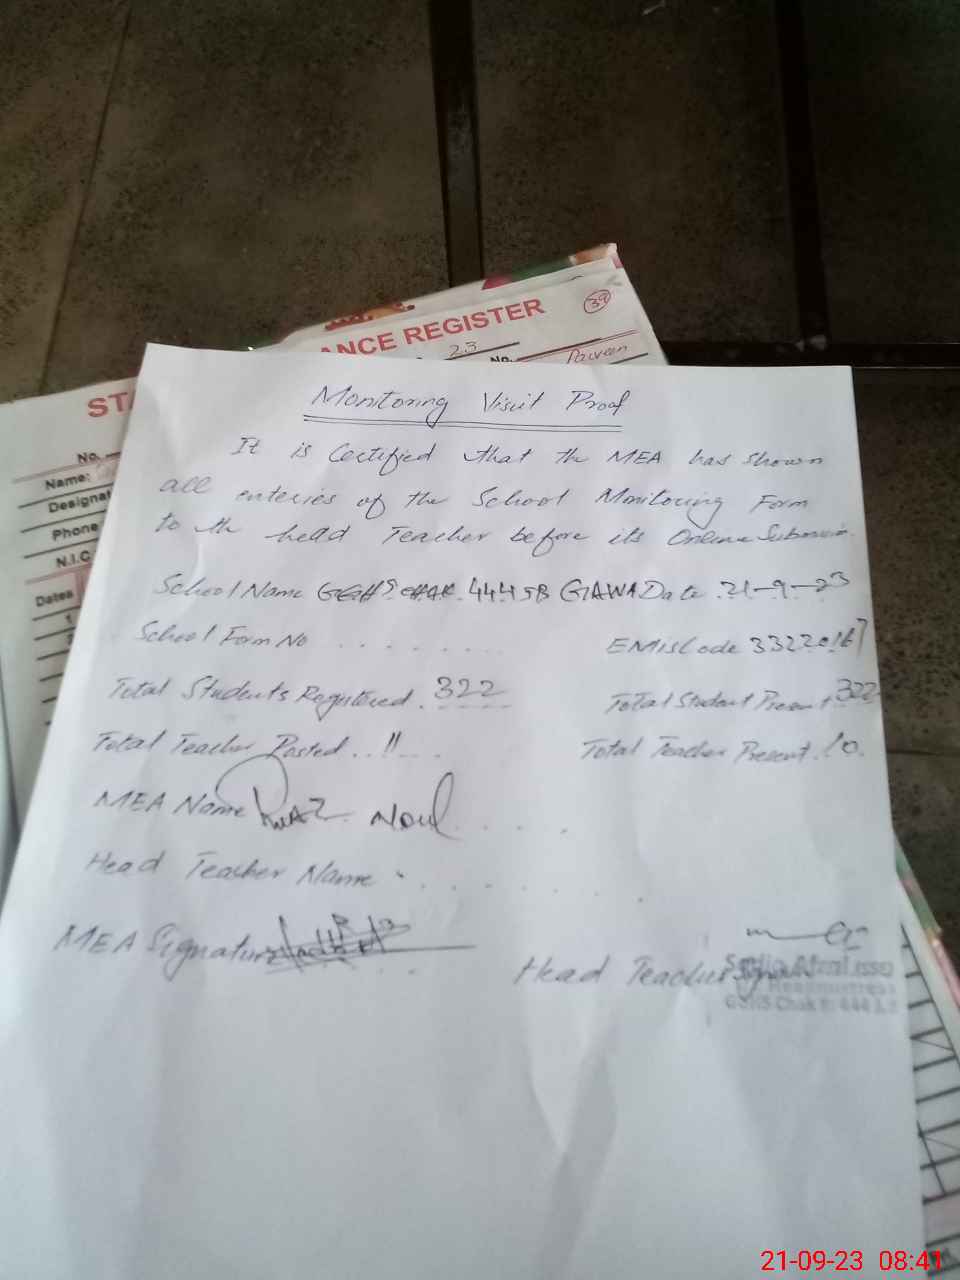 ANCE REGISTER
39
23
No.
Parveen
STA
No.
Name:
Designat
Phone
N.I.C
Dates
1
Monitoring Visit Proof
It is Certified that the MEA has shown
all enteries of the School Monitoring Form
to the head Teacher before its Online
School Name GGHS CHAK 444 JB Date 21-9-23
School Form No .........
EMIS Code 33220167
Total Students Registered. 322
Total Student Present 322
Total Teacher Posted..11....
Total Teacher Present.10.
MEA Name
Head Teacher Name
MEA Signature
Head Teacher
Headmistress
Chak # 444 J.B
21-09-23 08:41